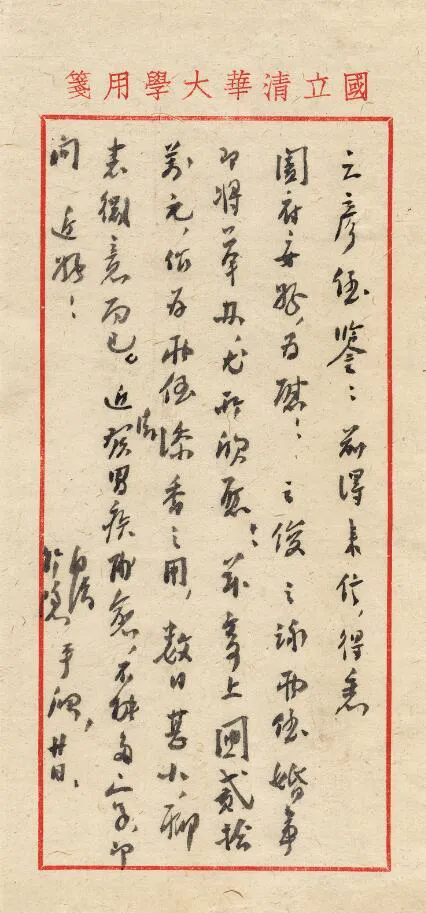 國立清華大學用箋
之彥侄鑒:前得來信,得悉
闔府安好,為慰!之俊之詠兩侄婚事
即將舉辦,尤所欣慰!茲寄上國貳拾
萬元,作為兩侄添香之用,數目甚小,聊
表微意而已。近發胃疾愈,不能多寫,即
問 近好!
自清
竹隱 手啟,廿日。